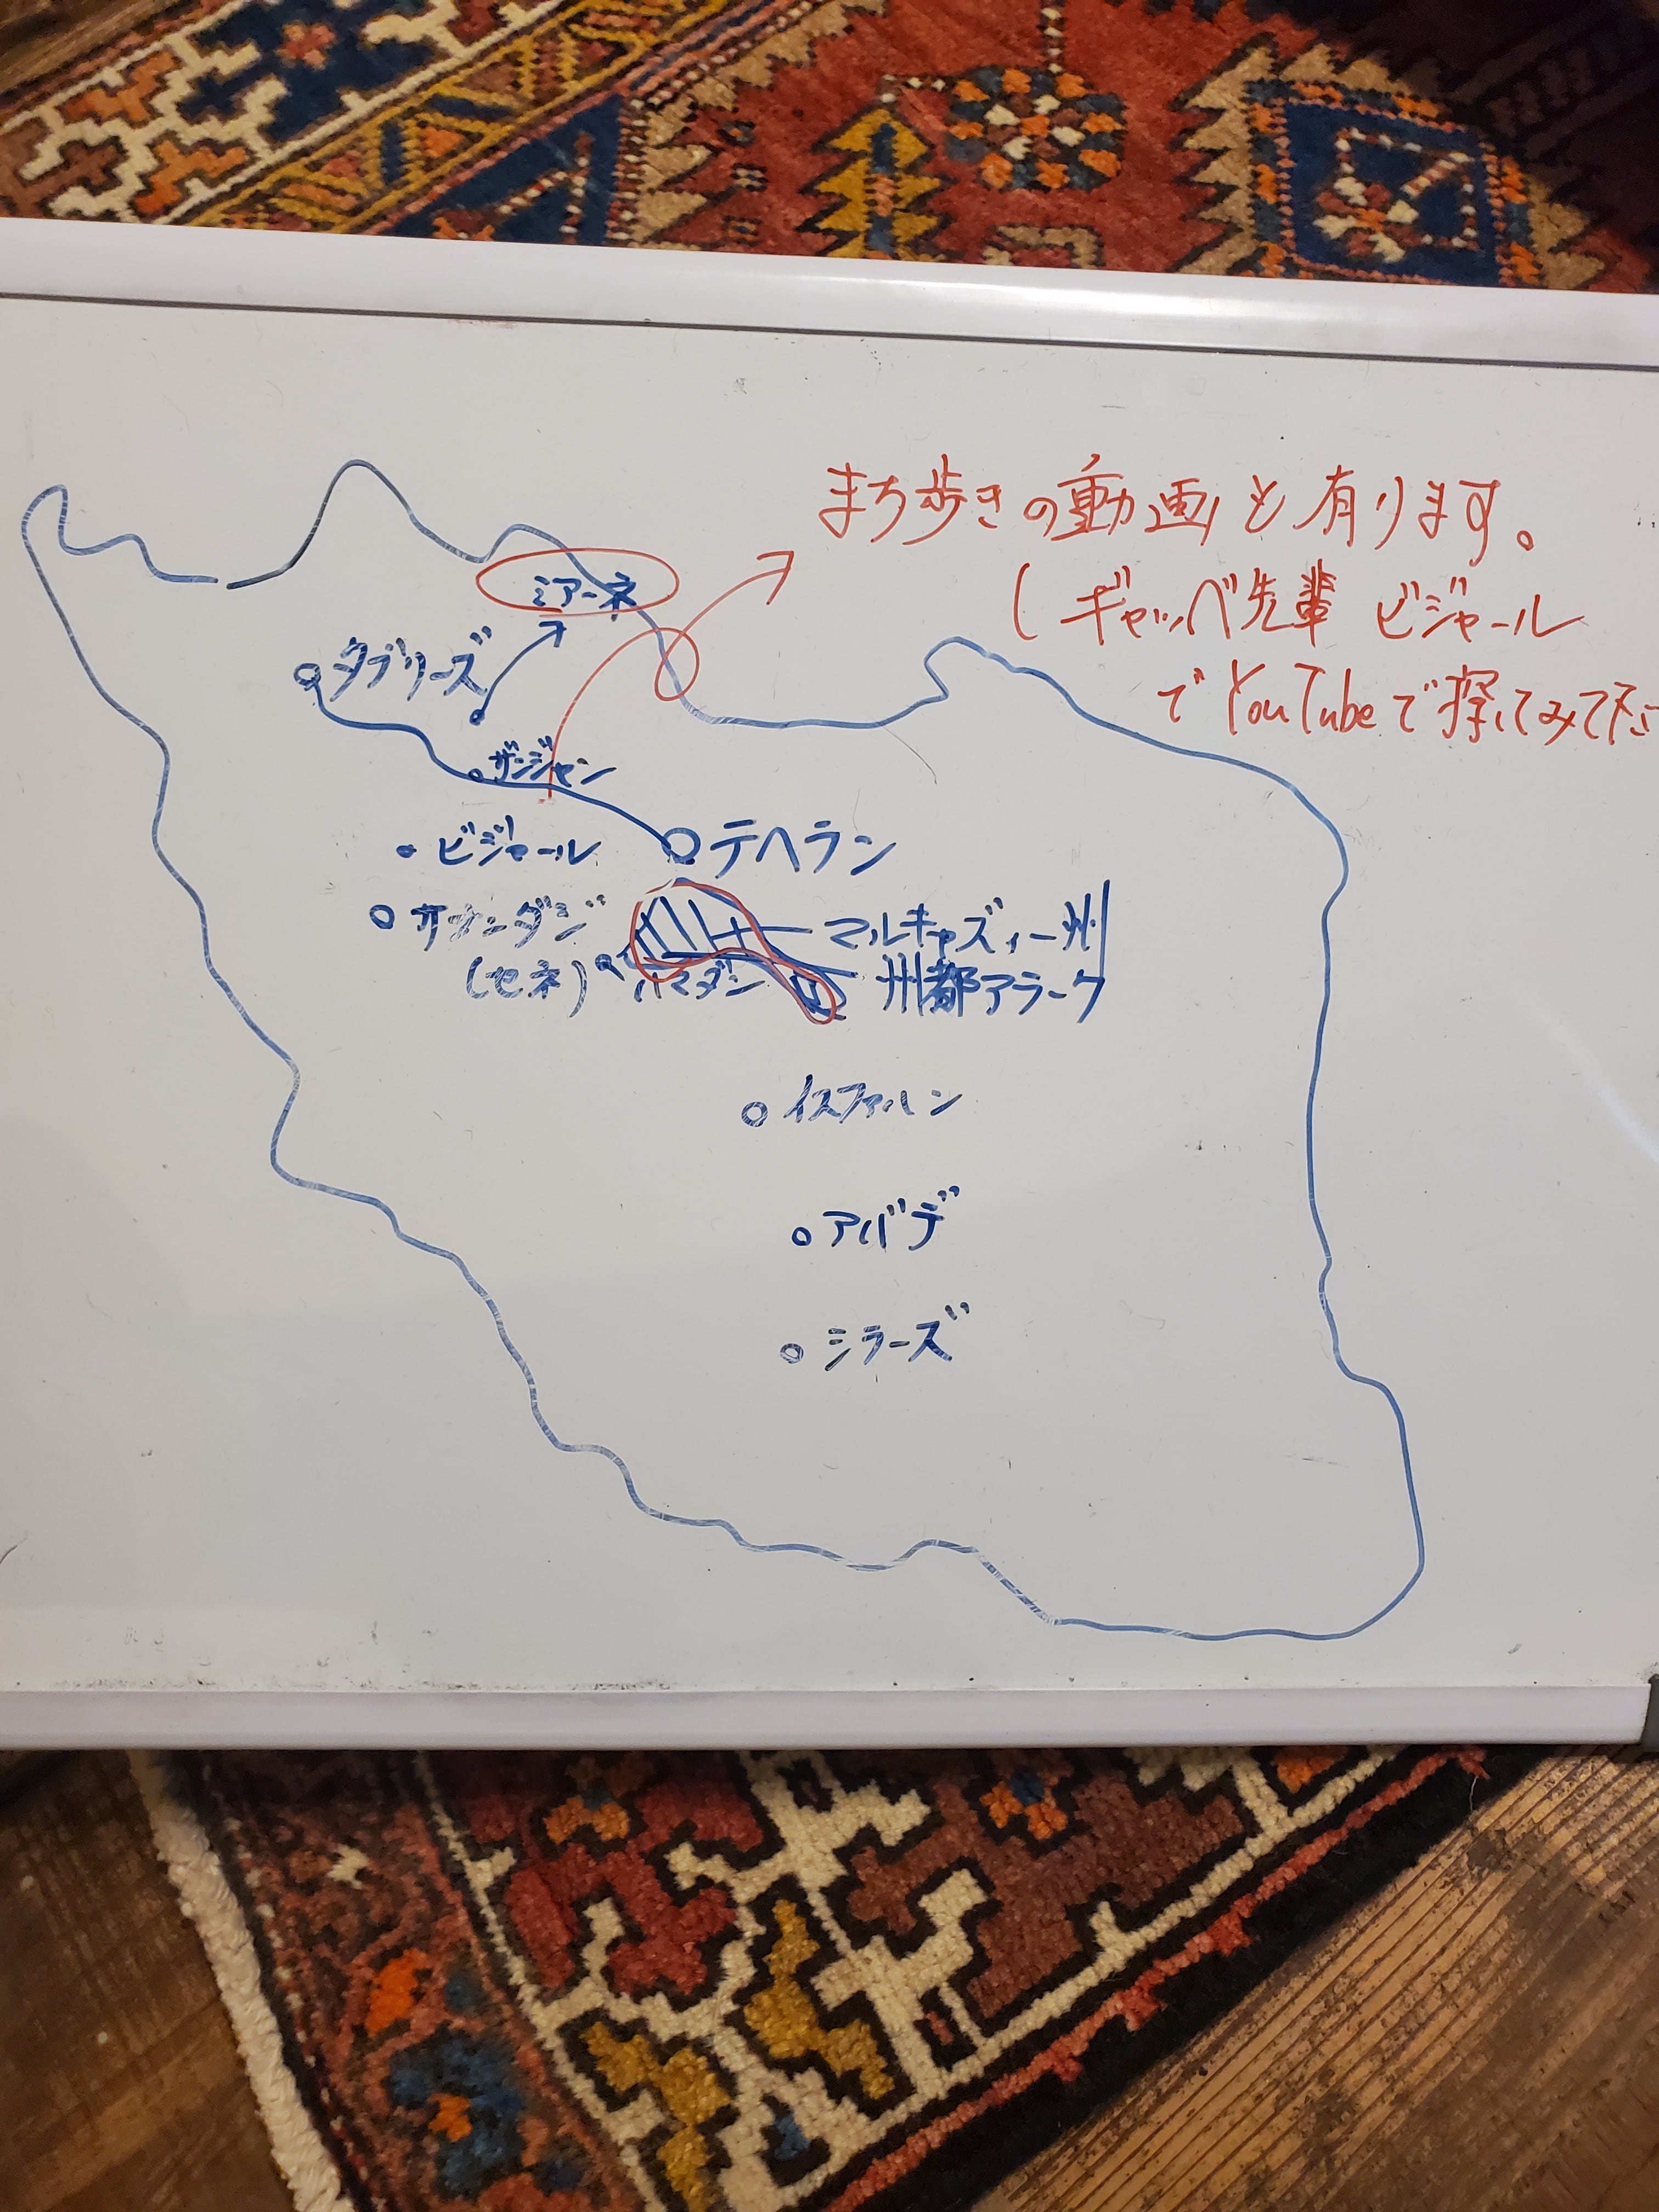 まち歩きの動画も有ります。
(ギャッベ先輩 ビジャール
でYouTubeで探してみて下さ
ミアーネ
タブリーズ
ザンジャン
ビジャール
テヘラン
サナンダジ
(セネ)
ハマダン
マルキャズィー州
州都アラーク
イスファハン
アバデ
シラーズ